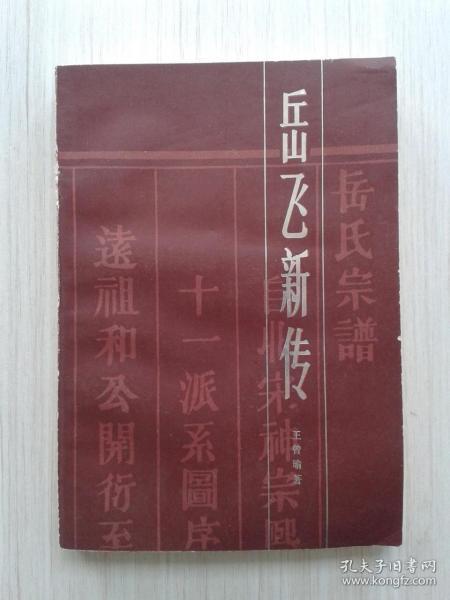 岳飞新传
王曾瑜著
岳氏宗譜
自北宋神宗熙
十一派系圖序
遠祖和公開衍至
孔夫子旧书网
www.kongfz.com